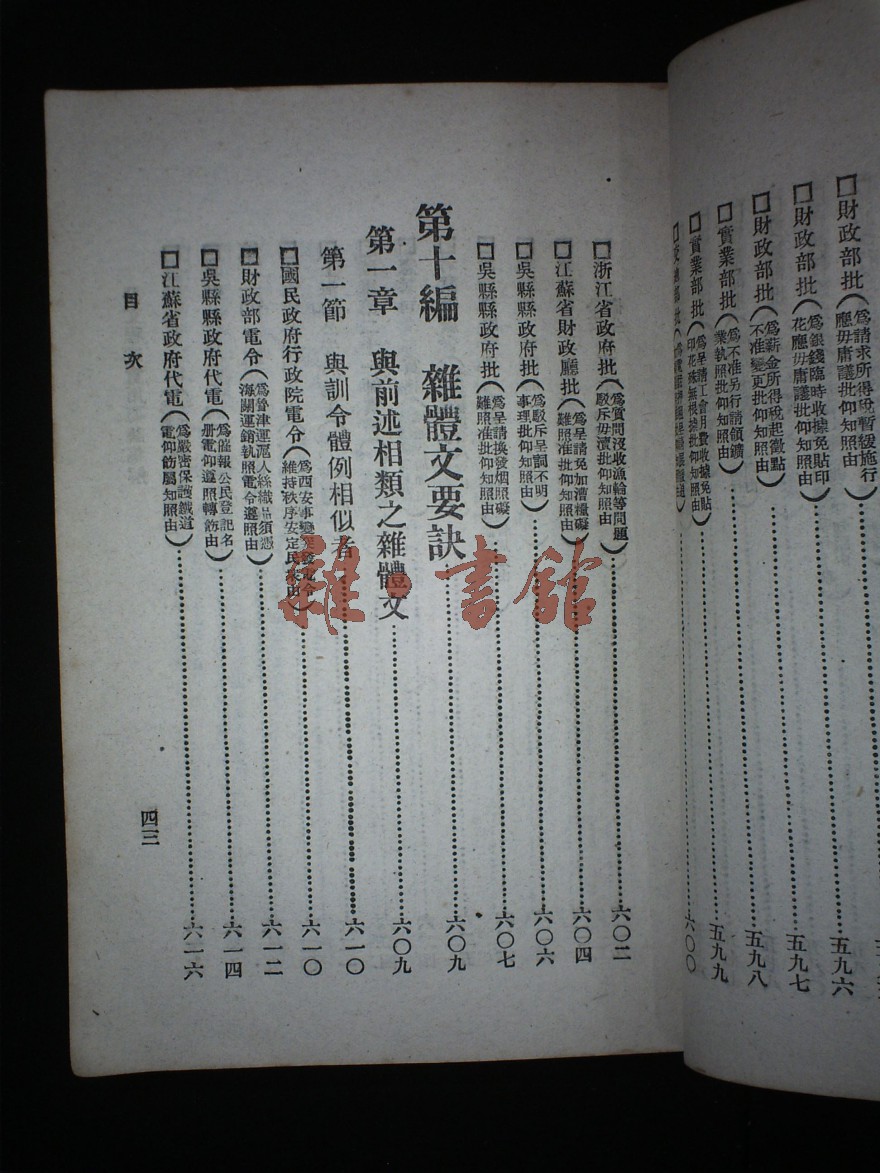 □財政部批(爲請求所得稅暫緩施行應毋庸議批仰知照由)……五九六
□財政部批(爲銀錢臨時收據免貼印花應毋庸議批仰知照由)……五九七
□財政部批(爲薪金所得稅起徵點不准變更批仰知照由)……五九八
□實業部批(爲不准另行請領鑛業執照批仰知照由)……五九九
□實業部批(爲呈請工會月費收據免貼印花殊無根據批仰知照由)……六〇〇
□浙江省政府批(爲質問沒收漁輪等問題駁斥毋瀆批仰知照由)……六〇二
□江蘇省財政廳批(爲呈請免加漕糧礙難照准批仰知照由)……六〇四
□吳縣縣政府批(爲駁斥呈詞不明事理批仰知照由)……六〇六
□吳縣縣政府批(爲呈請換發烟照礙難照准批仰知照由)……六〇七
第十編　雜體文要訣……六〇九
第一章　與前述相類之雜體文……六〇九
第一節　與訓令體例相似者……六一〇
□國民政府行政院電令(爲西安事變維持秩序安定民由)……六一〇
□財政部電令(爲魯津運滬人絲織品須憑海關運銷執照電令遵照由)……六一二
□吳縣縣政府代電(爲催報公民登記名册電仰遵照轉飭由)……六一四
□江蘇省政府代電(爲嚴密保護鐵道電仰飭屬知照由)……六一六
目　次
四三
雅·書館